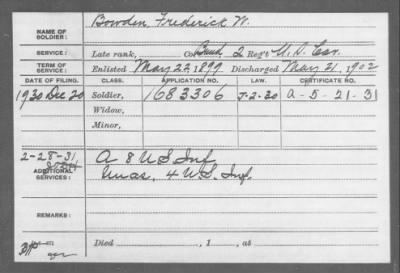 NAME OF SOLDIER: Bowden, Frederick W.
SERVICE: Late rank, Co. Band 2 Reg't U.S. Cav.
TERM OF SERVICE: Enlisted May 22, 1899 Discharged May 21, 1902
DATE OF FILING. CLASS. APPLICATION NO. LAW. CERTIFICATE NO.
1930 Dec 20 Soldier, 1683306 J-2-30 A-5-21-31
Widow,
Minor,
2-28-31 A 8 U S Inf
ADDITIONAL SERVICES: Unas. 4 U.S. Inf.
REMARKS:
Died , 1 , at